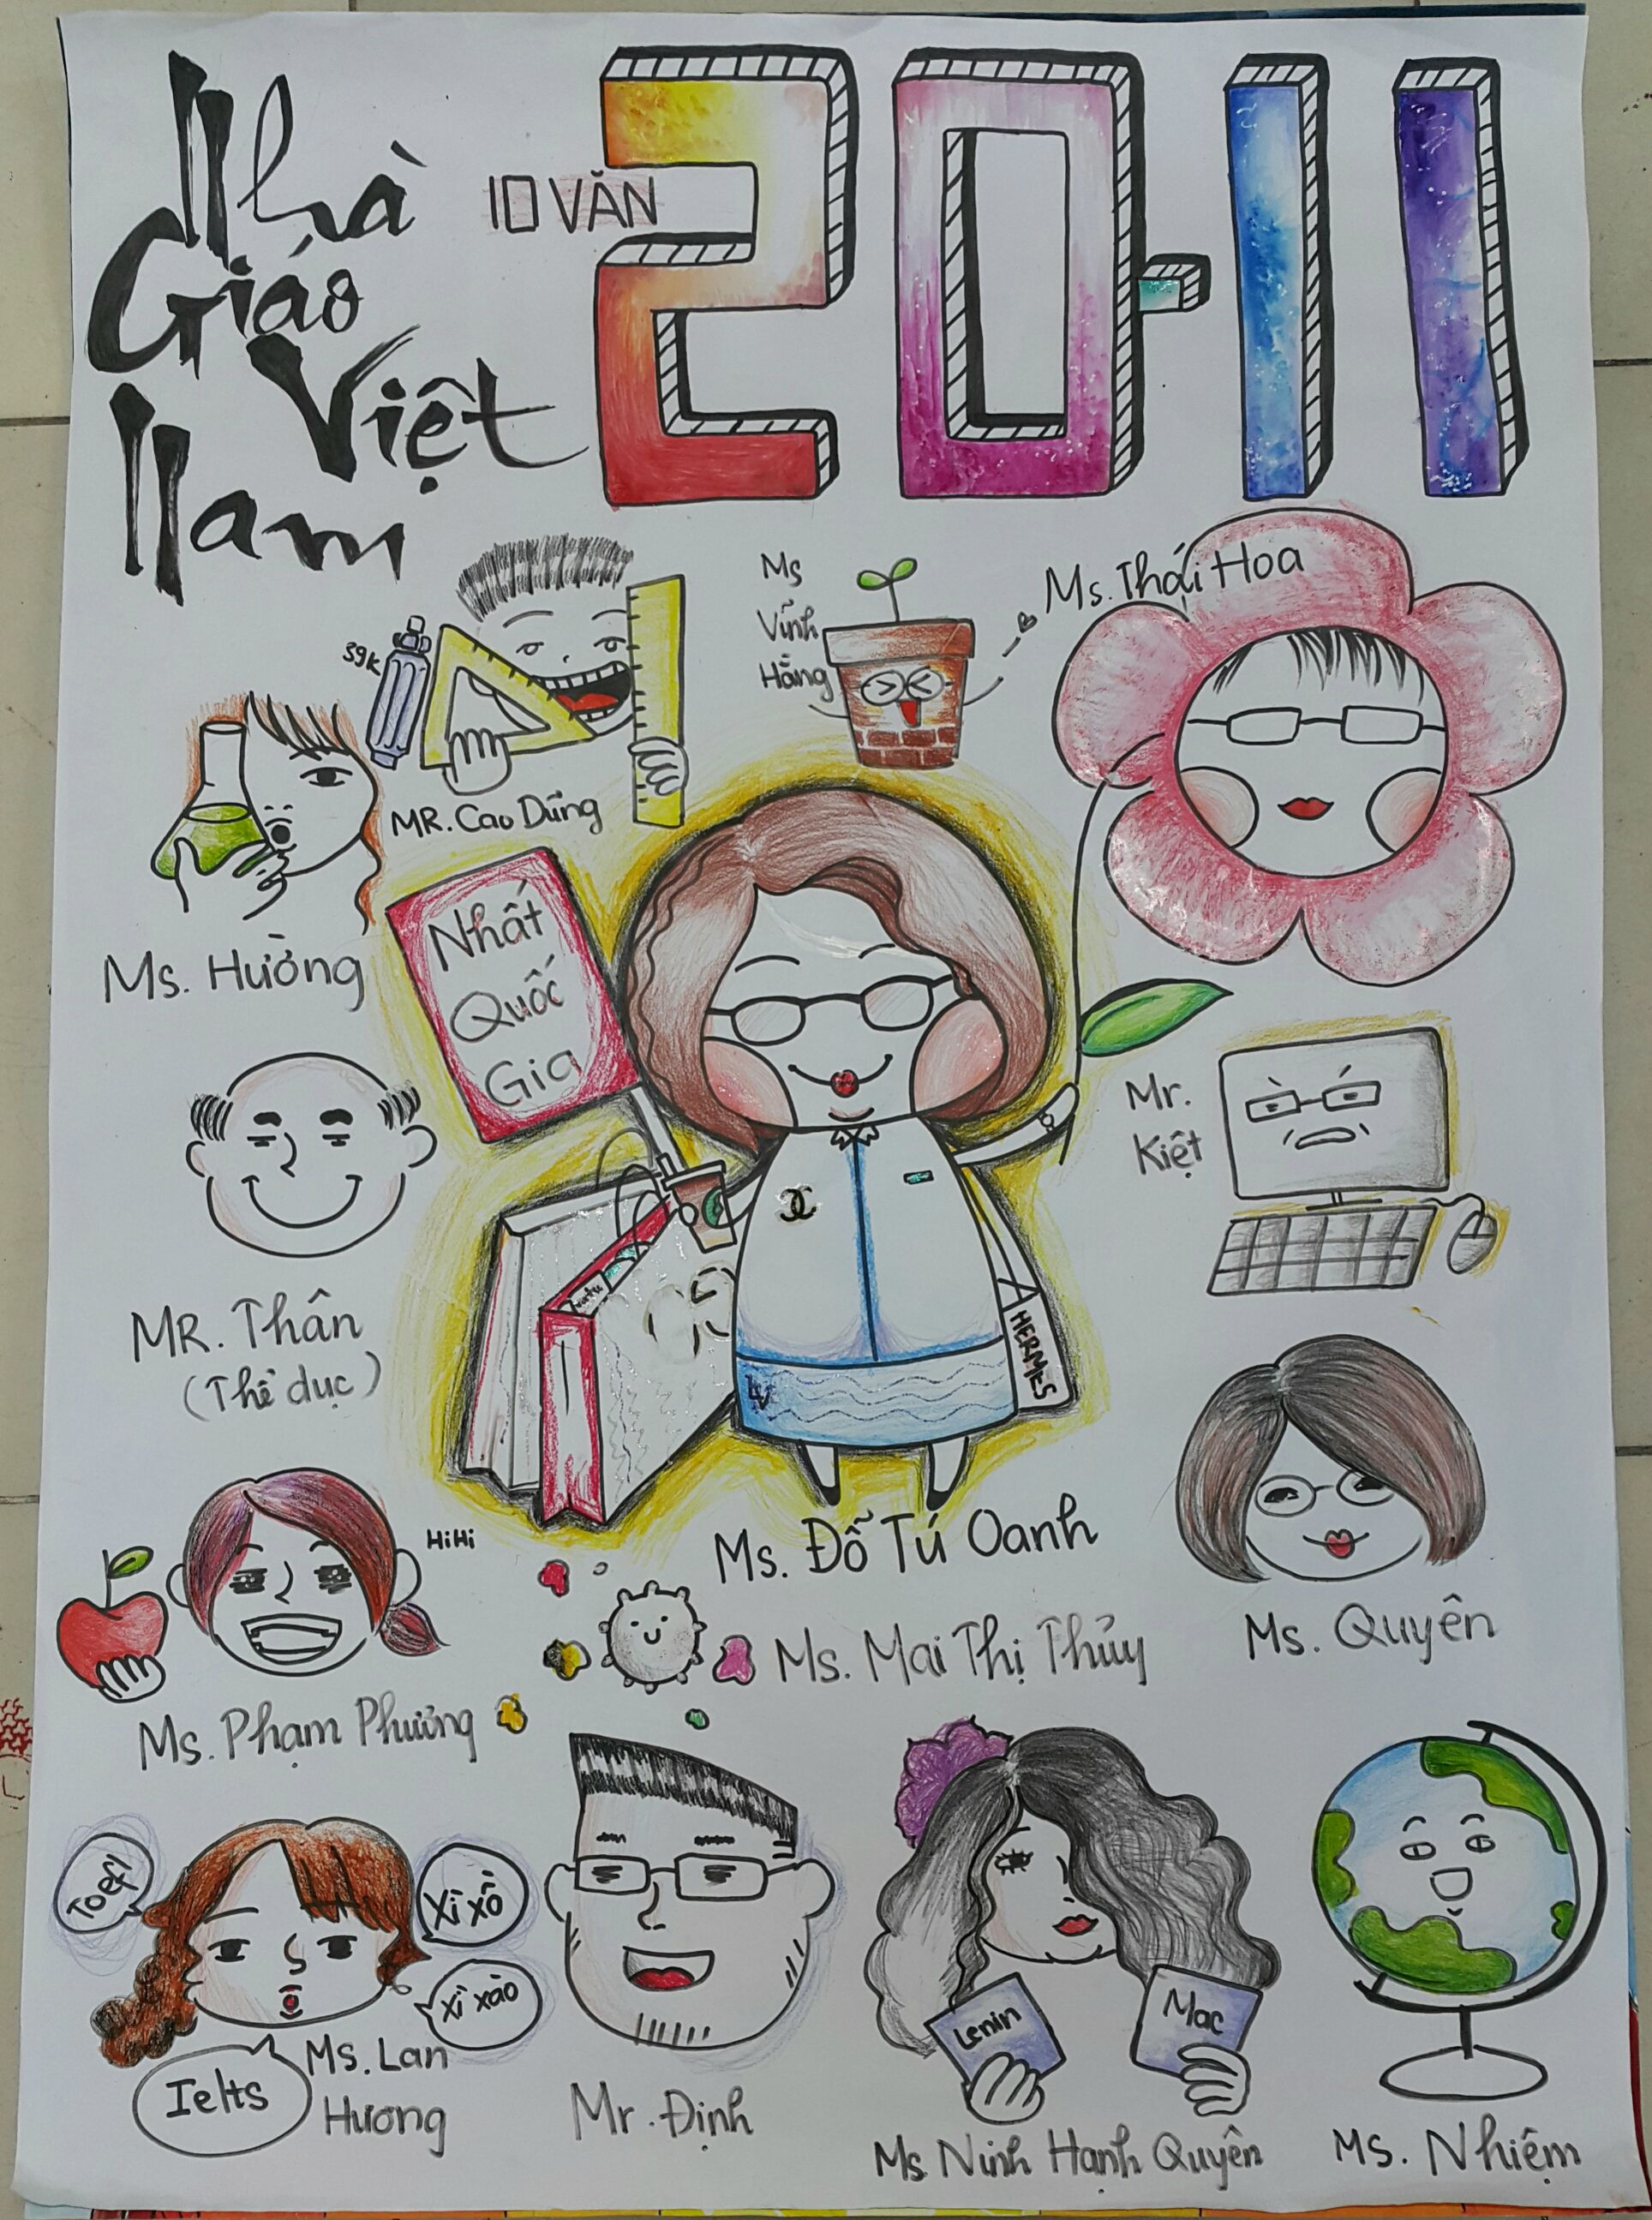 Nhà
Giáo
Việt
Nam
10 VĂN
20-11
39K
MR. Cao Dũng
Ms
Vĩnh
Hằng
Ms. Thái Hoa
Ms. Hường
Nhất
Quốc
Gia
Mr.
Kiệt
MR. Thân
(Thể dục)
HERMES
LV
Ms. Đỗ Tú Oanh
HiHi
Ms. Phạm Phương
Ms. Mai Thị Thủy
Ms. Quyên
Toefl
Xì xồ
Xì xào
Ielts
Ms. Lan
Hương
Mr. Định
Lenin
Mac
Ms Ninh Hạnh Quyên
MS. Nhiệm